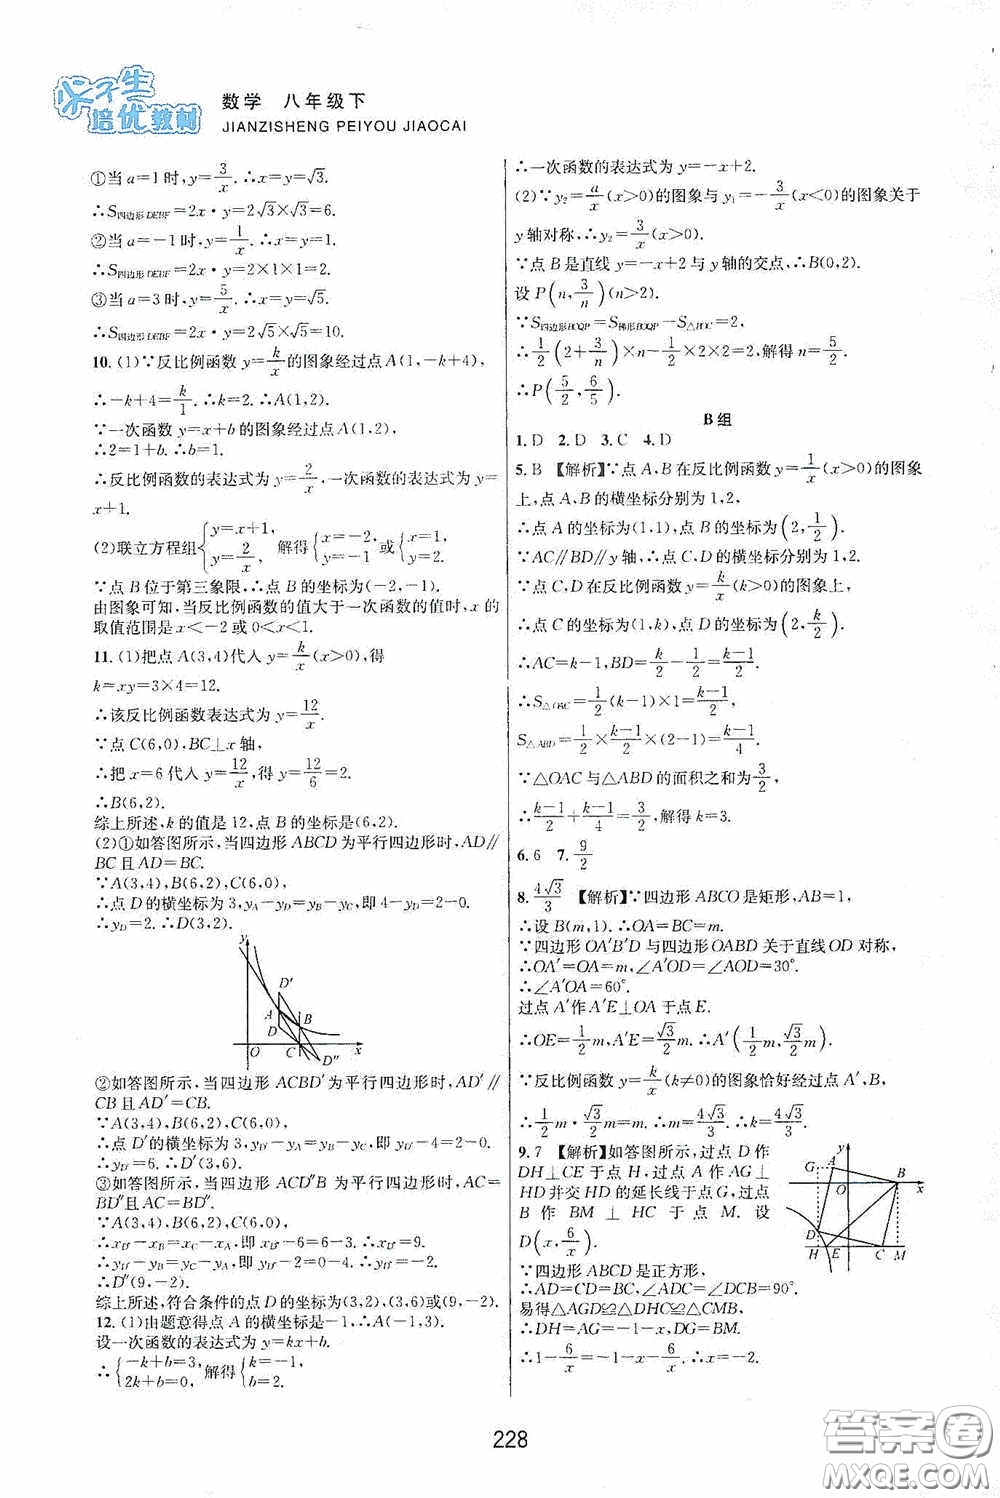 尖子生
培优教材
数学 八年级下
JIANZISHENG PEIYOU JIAOCAI
①当a=1时,y=3/x.∴x=√3.
∴S四边形DEBF=2x·y=2√3×√3=6.
②当a=-1时,y=1/x.∴x=y=1.
∴S四边形DEBF=2x·y=2×1×1=2.
③当a=3时,y=5/x.∴x=y=√5.
∴S四边形DEBF=2x·y=2√5×√5=10.
10.(1)∵反比例函数y=k/x的图象经过点A(1,-k+4),
∴-k+4=k/1.∴k=2.∴A(1,2).
∵一次函数y=x+b的图象经过点A(1,2),
∴2=1+b.∴b=1.
∴反比例函数的表达式为y=2/x,一次函数的表达式为y=
x+1.
(2)联立方程组{y=x+1, y=2/x. 解得{x=-2, y=-1或{x=1, y=2.
∵点B位于第三象限,∴点B的坐标为(-2,-1).
由图象可知,当反比例函数的值大于一次函数的值时,x的
取值范围是x<-2或0<x<1.
11.(1)把点A(3,4)代入y=k/x(x>0),得
k=xy=3×4=12.
∴该反比例函数表达式为y=12/x.
∵点C(6,0),BC⊥x轴,
∴把x=6代入y=12/x,得y=12/6=2.
∴B(6,2).
综上所述,k的值是12,点B的坐标是(6,2).
(2)①如答图所示,当四边形ABCD为平行四边形时,AD∥
BC且AD=BC.
∵A(3,4),B(6,2),C(6,0),
∴点D的横坐标为3,yA-yD=yB-yC,即4-yD=2-0.
∴yD=2.∴D(3,2).
y
D′
A
B
D
O
C
D″
x
②如答图所示,当四边形ACBD′为平行四边形时,AD′∥
CB且AD′=CB.
∵A(3,4),B(6,2),C(6,0),
∴点D′的横坐标为3,yD′-yA=yB-yC,即yD′-4=2-0.
∴yD′=6.∴D′(3,6).
③如答图所示,当四边形ACD″B为平行四边形时,AC=
BD″且AC=BD″.
∵A(3,4),B(6,2),C(6,0),
∴xD″-xB=xC-xA,即xD″-6=6-3.∴xD″=9.
∴yD″-yB=yC-yA,即yD″-2=0-4.∴yD″=-2.
∴D″(9,-2).
综上所述,符合条件的点D的坐标为(3,2),(3,6)或(9,-2).
12.(1)由题意得点A的横坐标是-1,∴A(-1,3).
设一次函数的表达式为y=kx+b.
∴{-k+b=3, 2k+b=0. 解得{k=-1, b=2.
∴一次函数的表达式为y=-x+2.
(2)∵y₂=a/x(x>0)的图象与y₁=-3/x(x<0)的图象关于
y轴对称,∴y₂=3/x(x>0).
∵点B是直线y=-x+2与y轴的交点,∴B(0,2).
设P(n,3/n)(n>2).
∵S四边形BCQP=S梯形BOQP-S△BOC=2,
∴1/2(2+3/n)×n-1/2×2×2=2,解得n=5/2.
∴P(5/2,6/5).
B组
1.D 2.D 3.C 4.D
5.B 【解析】∵点A、B在反比例函数y=1/x(x>0)的图象
上,点A、B的横坐标分别为1,2,
∴点A的坐标为(1,1),点B的坐标为(2,1/2).
∵AC∥BD∥y轴,∴点C,D的横坐标分别为1,2.
∵点C,D在反比例函数y=k/x(k>0)的图象上,
∴点C的坐标为(1,k),点D的坐标为(2,k/2).
∴AC=k-1,BD=k/2-1/2=k-1/2.
∴S△OAC=1/2(k-1)×1=k-1/2,
S△ABD=1/2×k-1/2×(2-1)=k-1/4.
∵△OAC与△ABD的面积之和为3/2,
∴k-1/2+k-1/4=3/2,解得k=3.
6.6 7.9/2
8.4√3/3 【解析】∵四边形ABCO是矩形,AB=1,
∴设B(m,1).∴OA=BC=m.
∵四边形OA′B′D与四边形OABD关于直线OD对称,
∴OA′=OA=m,∠A′OD=∠AOD=30°.
∴∠A′OA=60°.
过点A′作A′E⊥OA于点E.
∴OE=1/2m,A′E=√3/2m.∴A′(1/2m,√3/2m).
∵反比例函数y=k/x(k≠0)的图象恰好经过点A′,B,
∴1/2m·√3/2m=m.∴m=4√3/3.∴k=4√3/3.
9.7 【解析】如答图所示,过点D作
DH⊥CE于点H,过点A作AG⊥
HD并交HD的延长线于点G,过点
B作BM⊥HC于点M.设
D(x,6/x).
y
G
A
B
O
x
D
H
E
C
M
∵四边形ABCD是正方形,
∴AD=CD=BC,∠ADC=∠DCB=90°.
易得△AGD≌△DHC≌△CMB,
∴DH=AG=-1-x,DG=BM.
∴1-6/x=-1-x-6/x.∴x=-2.
228
答案圈
MXQE.COM